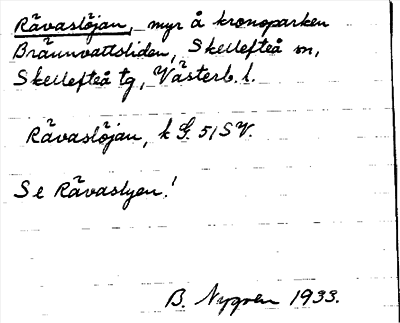 Råvaslöjan, myr å kronoparken
Bräunvattsliden, Skellefteå sn,
Skellefteå tg, Västerb. l.
Råvaslöjan, k G. 51 SV.
Se Råvaslyen!
B. Nygren 1933.